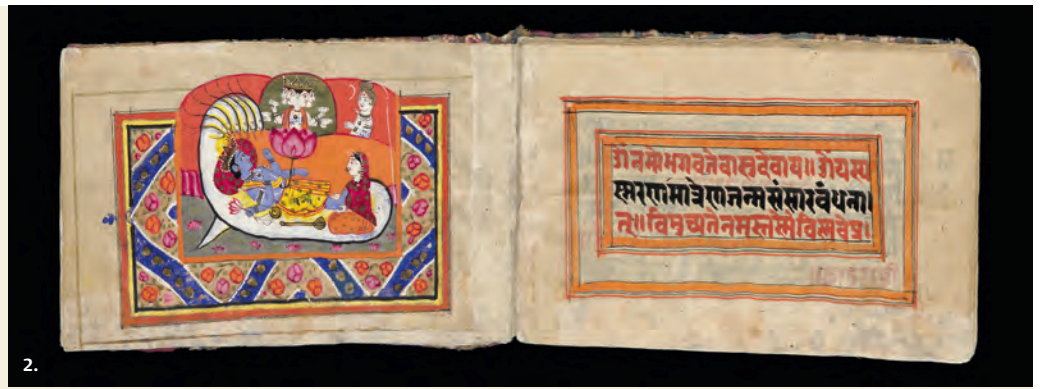 ॐनमोभगवतेवासुदेवाय॥ ॐयस्य
स्मरणमात्रेणजन्मसंसारवंधना।
त्॥विमुच्यतेनमस्तस्मैविष्णवेप्र।
2.